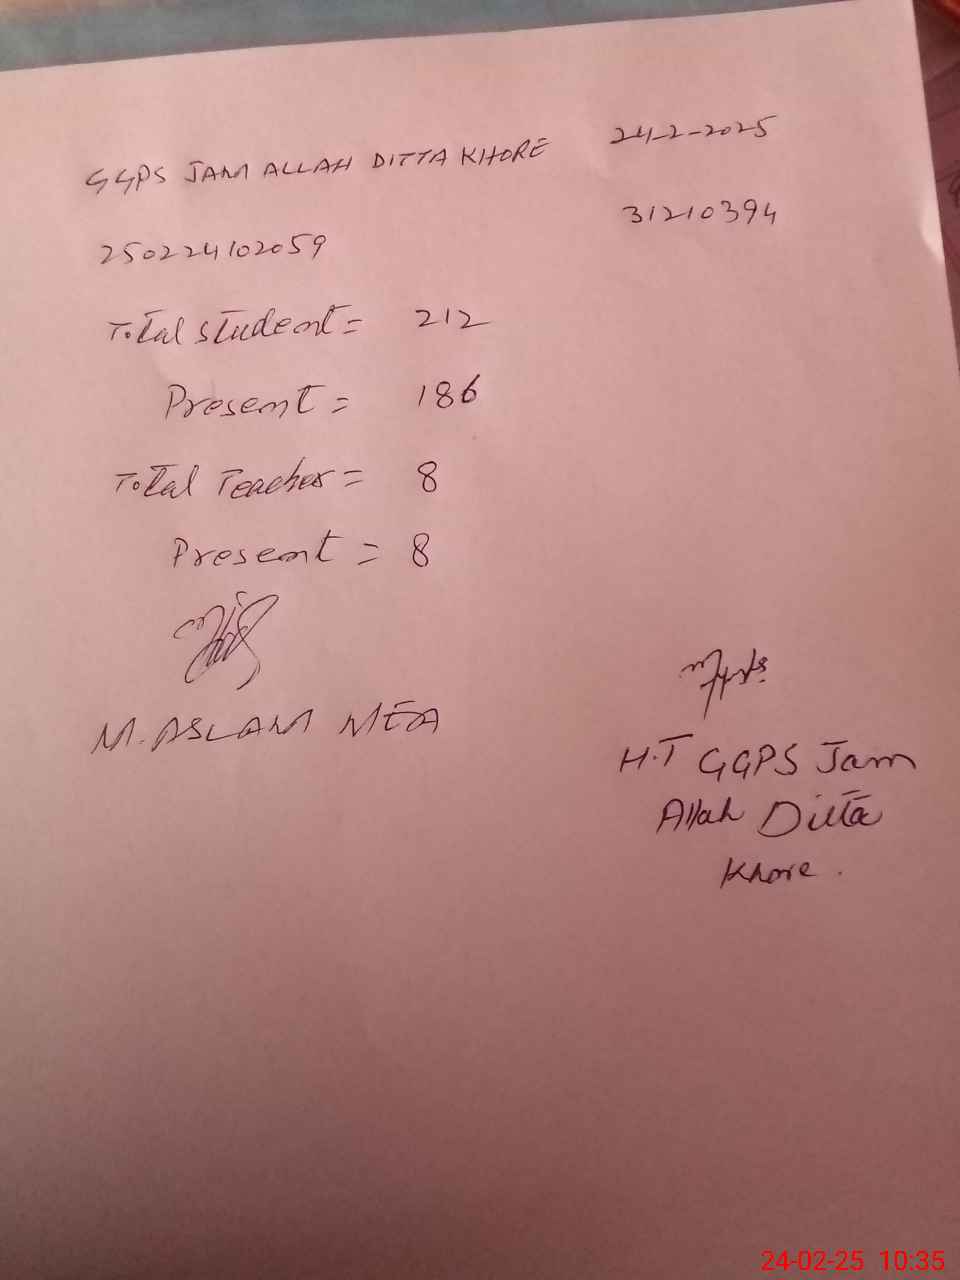 GGPS JAM ALLAH DITTA KHORE 24-2-2025
250224102059 31210394
Total student = 212
Present = 186
Total Teacher = 8
Present = 8
M. ASLAM MEA
H.T GGPS Jam
Allah Ditta
Khore.
24-02-25 10:35